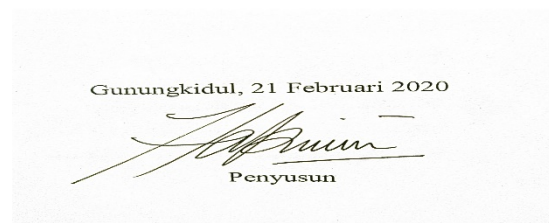 Gunungkidul, 21 Februari 2020
Penyusun